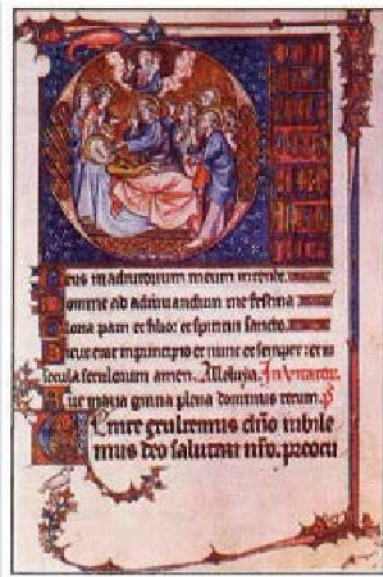 Deus in adiutorium meum intende.
Domine ad adiuvandum me festina
Gloria patri et filio et spiritui sancto.
Sicut erat in principio et nunc et semper: et in
secula seculorum amen. Alleluya.
Ave maria gratia plena dominus tecum.
Venite exultemus dño iubile
mus deo salutari nr̄o. preocu